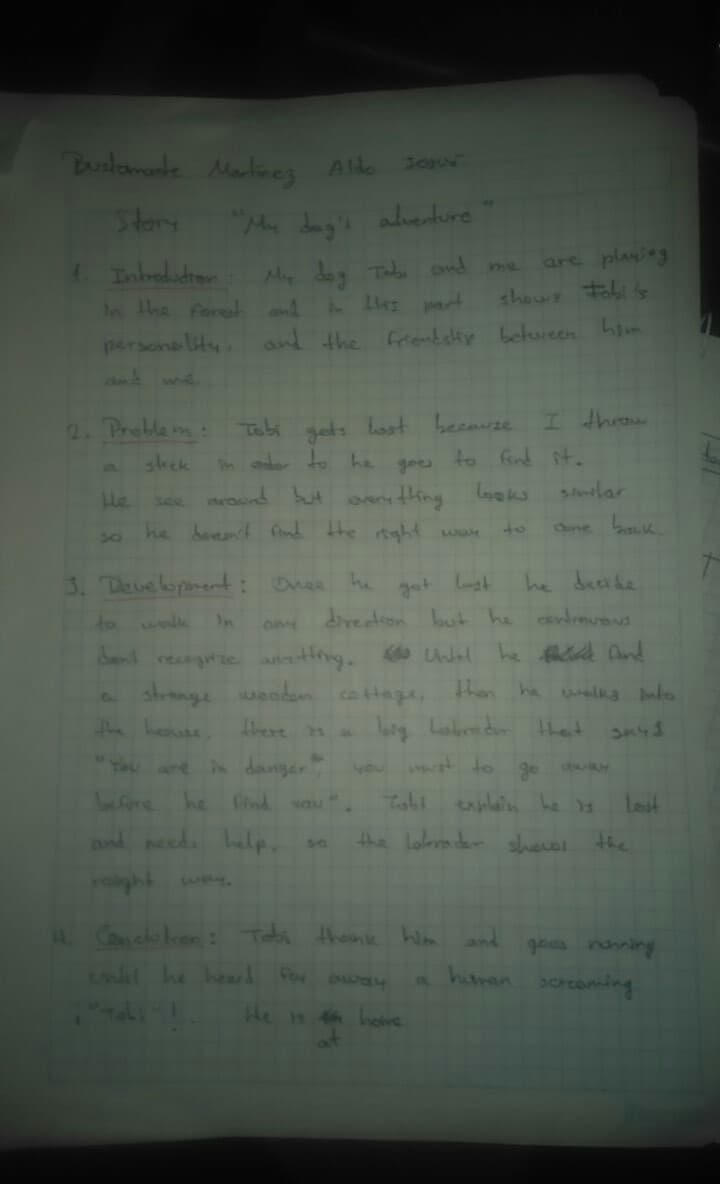 Bustamante Martinez Aldo Josue
Story "My dog's adventure"
1. Introduction: My dog Tobi and me are playing
in the forest and in this part shows Tobi's
personality, and the friendship between him
and me.
2. Problem: Tobi gets lost because I throw
a stick in order to he goes to find it.
He see around but everything looks similar
so he doesn't find the right way to come back.
3. Development: Once he got lost he decide
to walk in any direction but he
don't recognize anything. Until he find
a strange wooden cottage, then he walks into
the house, there is a big labrador that says
"You are in danger", you must to go away
before he find you". Tobi explain he is lost
and needs help, so the labrador shows the
way.
4. Conclution: Tobi thank him and goes running
until he heard far away a human screaming
¡"Tobi"!. He is at home